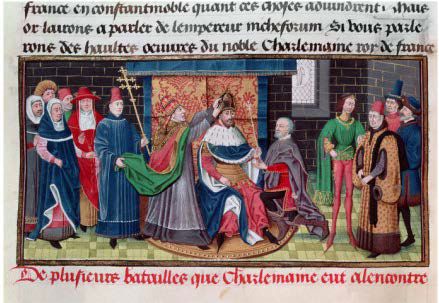 france en constantinoble quant ces choses advindrent. Mais
or lairons a parler de lempereur nicheforum Si vous parle
rons des haultes oeuvres du noble Charlemaine roy de france
De plusieurs batailles que Charlemaine eut alencontre